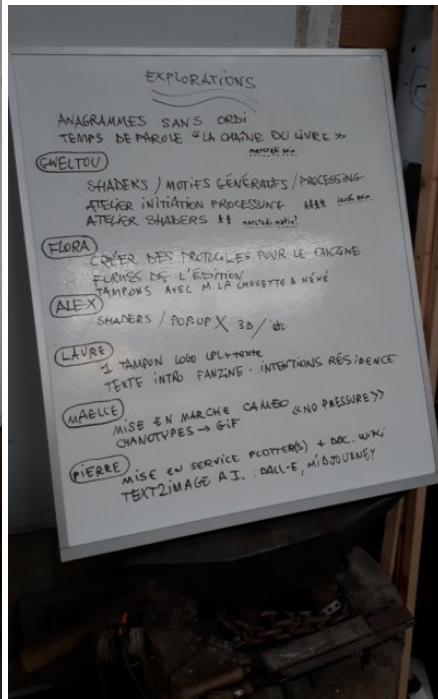 EXPLORATIONS
ANAGRAMMES SANS ORDI
TEMPS DE PAROLE "LA CHAÎNE DU LIVRE"
mercredi soir
GWELTOU
SHADERS / MOTIFS GÉNÉRATIFS / PROCESSING
ATELIER INITIATION PROCESSING **** jeudi soir
ATELIER SHADERS ** mercredi matin?
FLORA
CRÉER DES PROTOCOLES POUR LE FANZINE
FORMES DE L'ÉDITION
TAMPONS AVEC M. LA CHOUETTE & NÉNÉ
ALEX
SHADERS / POPUP X 3D / etc
LAURE
1 TAMPON LOGO LPL + texte
TEXTE INTRO FANZINE. INTENTIONS RÉSIDENCE
MAELLE
MISE EN MARCHE CAMEO «NO PRESSURE»
CHANOTYPES → GIF
PIERRE
MISE EN SERVICE PLOTTER(S) + DOC. WIKI
TEXT2IMAGE A.I. : DALL-E, MIDJOURNEY